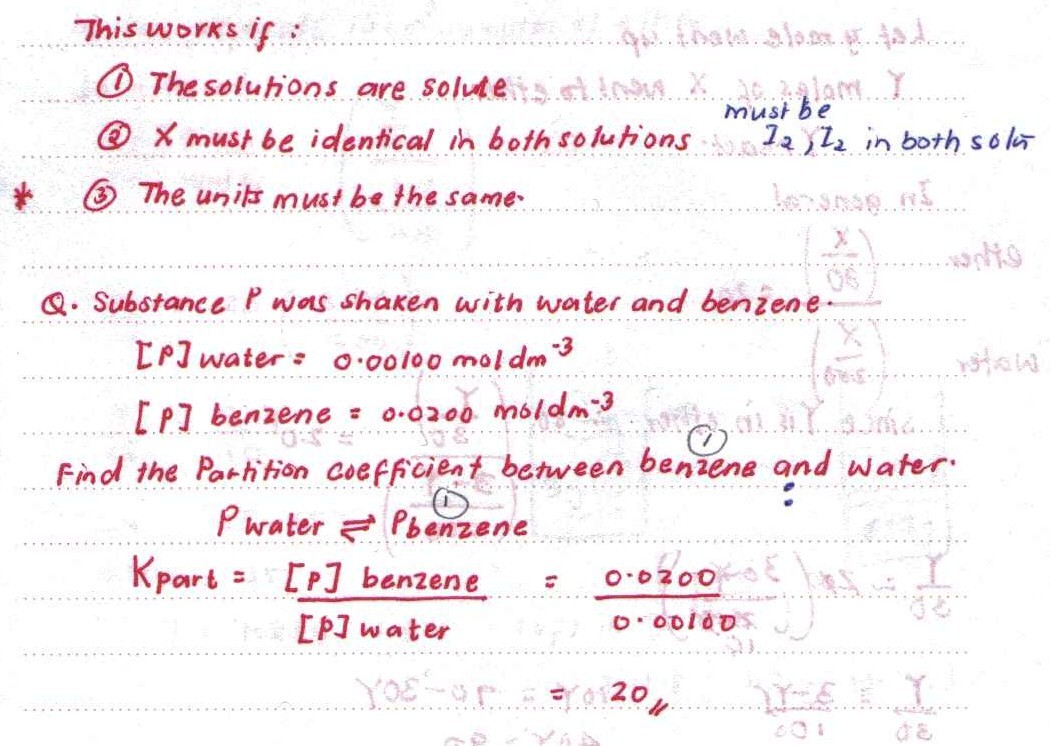 This works if :
① The solutions are solute
② X must be identical in both solutions must be I₂, I₂ in both soln
* ③ The units must be the same.
Q. Substance P was shaken with water and benzene.
[P] water = 0.00100 mol dm⁻³
[P] benzene = 0.0200 mol dm⁻³
Find the Partition coefficient between benzene ① and water.
P water ⇌ P benzene ①
Kpart = [P] benzene / [P] water = 0.0200 / 0.00100
= 20